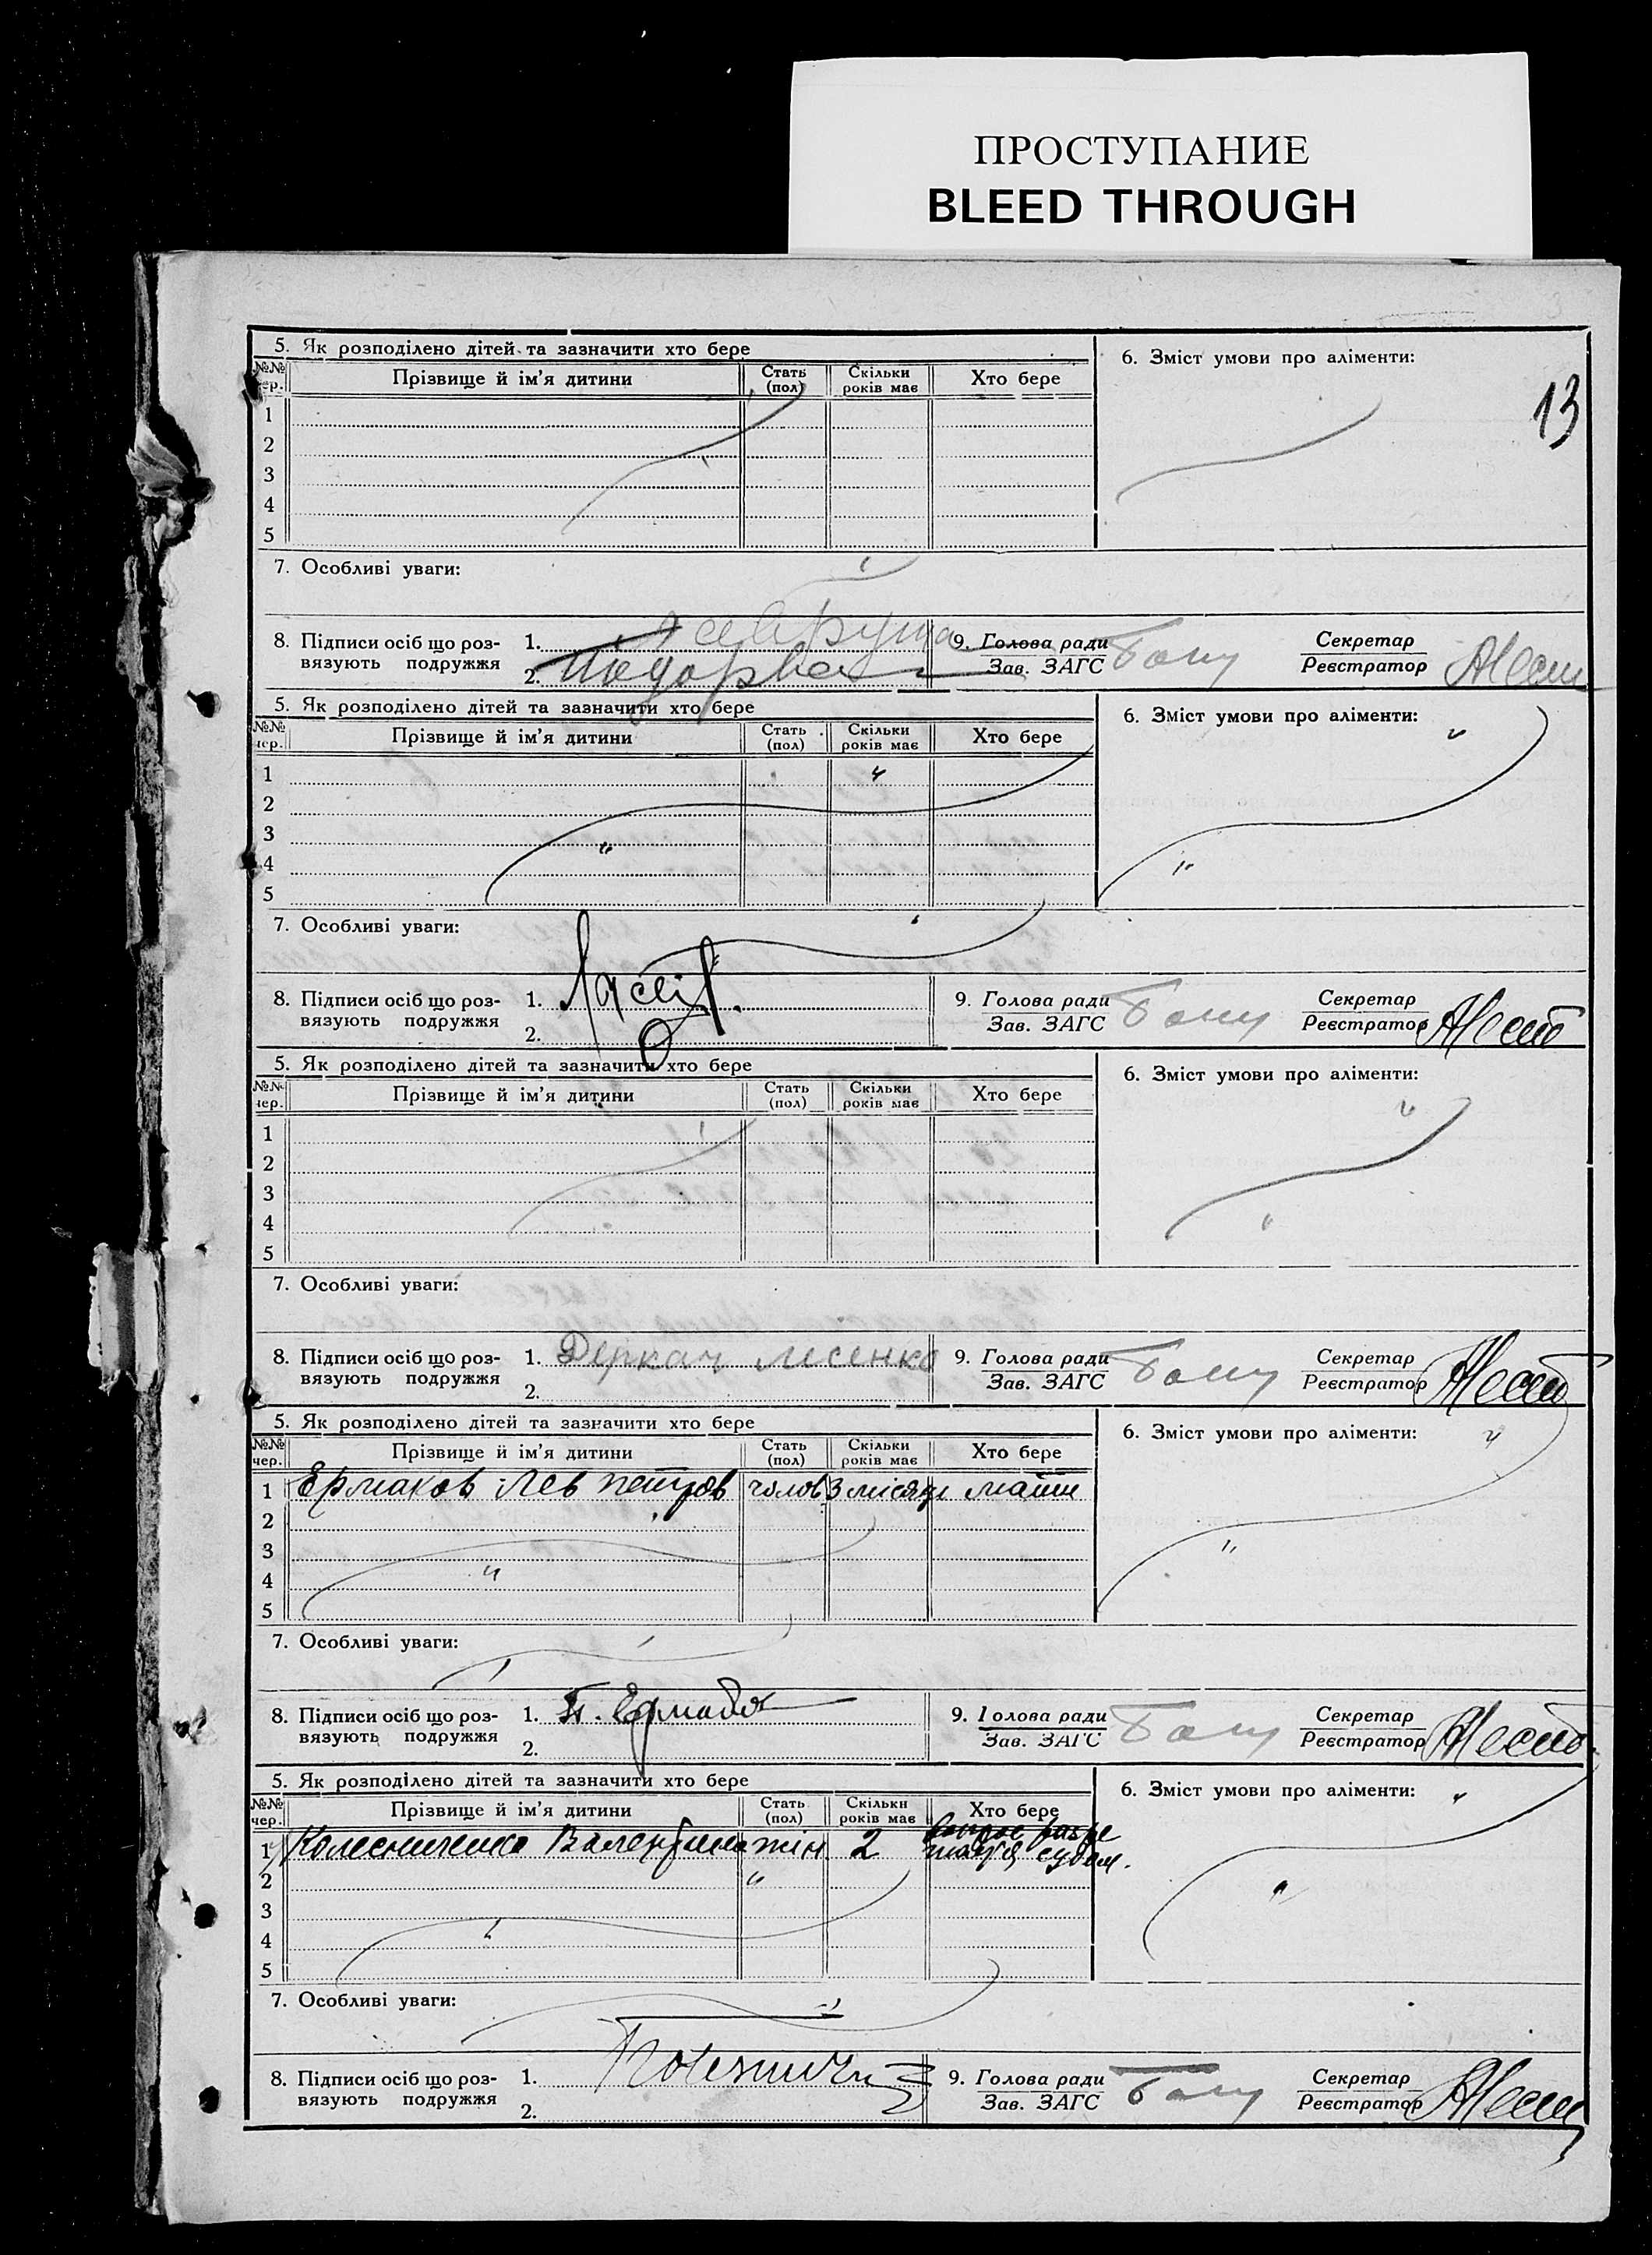 ПРОСТУПАНИЕ
BLEED THROUGH
13
5. Як розподілено дітей та зазначити хто бере
6. Зміст умови про аліменти:
№№ чер. Прізвище й ім’я дитини Стать (пол) Скільки років має Хто бере
1
2
3
4
5
7. Особливі уваги:
8. Підписи осіб що роз-
вязують подружжя
1.
2.
9. Голова ради
Зав. ЗАГС
Секретар
Реєстратор
5. Як розподілено дітей та зазначити хто бере
6. Зміст умови про аліменти:
№№ чер. Прізвище й ім’я дитини Стать (пол) Скільки років має Хто бере
1
2
3
4
5
7. Особливі уваги:
8. Підписи осіб що роз-
вязують подружжя
1.
2.
9. Голова ради
Зав. ЗАГС
Секретар
Реєстратор
5. Як розподілено дітей та зазначити хто бере
6. Зміст умови про аліменти:
№№ чер. Прізвище й ім’я дитини Стать (пол) Скільки років має Хто бере
1
2
3
4
5
7. Особливі уваги:
8. Підписи осіб що роз-
вязують подружжя
1. Деркач
2.
9. Голова ради
Зав. ЗАГС
Секретар
Реєстратор
5. Як розподілено дітей та зазначити хто бере
6. Зміст умови про аліменти:
№№ чер. Прізвище й ім’я дитини Стать (пол) Скільки років має Хто бере
1 Ермаков Лев Петров чолов 3 місяці мати
2
3
4
5
7. Особливі уваги:
8. Підписи осіб що роз-
вязують подружжя
1.
2.
9. Голова ради
Зав. ЗАГС
Секретар
Реєстратор
5. Як розподілено дітей та зазначити хто бере
6. Зміст умови про аліменти:
№№ чер. Прізвище й ім’я дитини Стать (пол) Скільки років має Хто бере
1 Колесниченко Валентина жін. 2 судом.
2
3
4
5
7. Особливі уваги:
8. Підписи осіб що роз-
вязують подружжя
1.
2.
9. Голова ради
Зав. ЗАГС
Секретар
Реєстратор